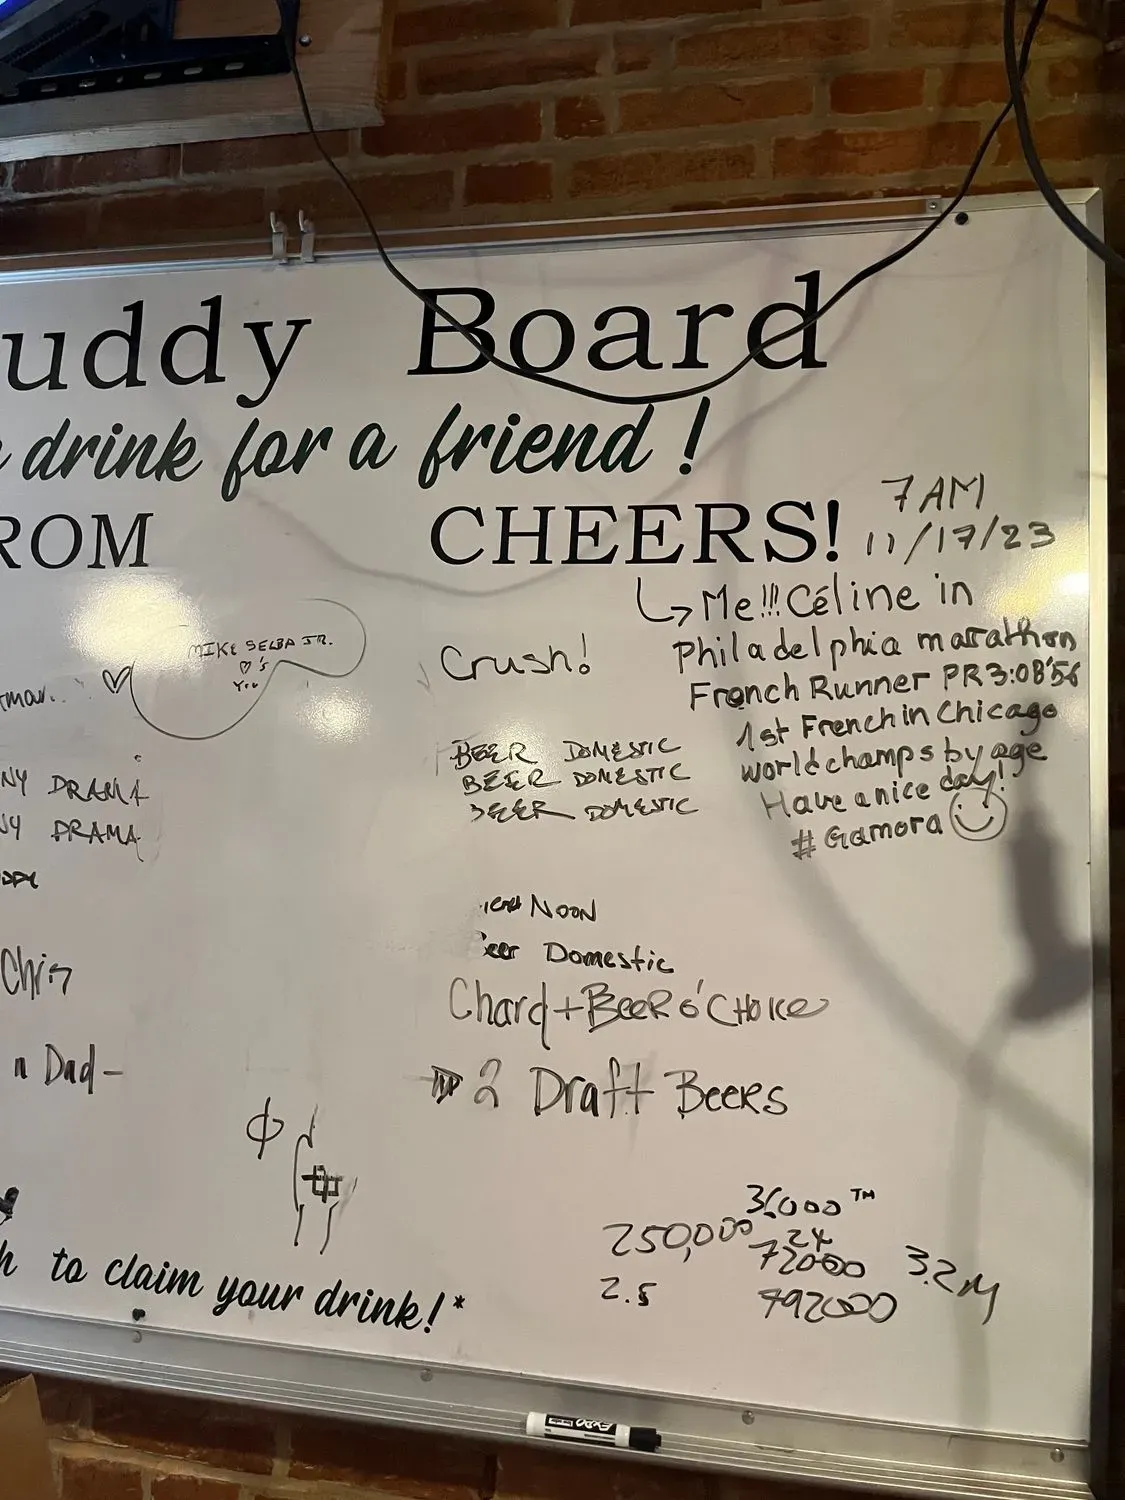 uddy Board
drink for a friend!
ROM CHEERS!
7AM
11/17/23
Me!!! Céline in
Philadelphia marathon
French Runner PR 3:08'56
1st French in Chicago
world champs by age
Have a nice day!
# Gamora
MIKE SELBA JR.
♡'s
You
Crush!
BEER DOMESTIC
BEER DOMESTIC
BEER DOMESTIC
NY DRAMA
NY DRAMA
NOON
eer Domestic
Chris
Chard + BEER O' CHOICE
n Dad -
2 Draft BEERS
250,000
2.5
36000 ™
24
72000
792000
3.2M
h to claim your drink!*
EXPO